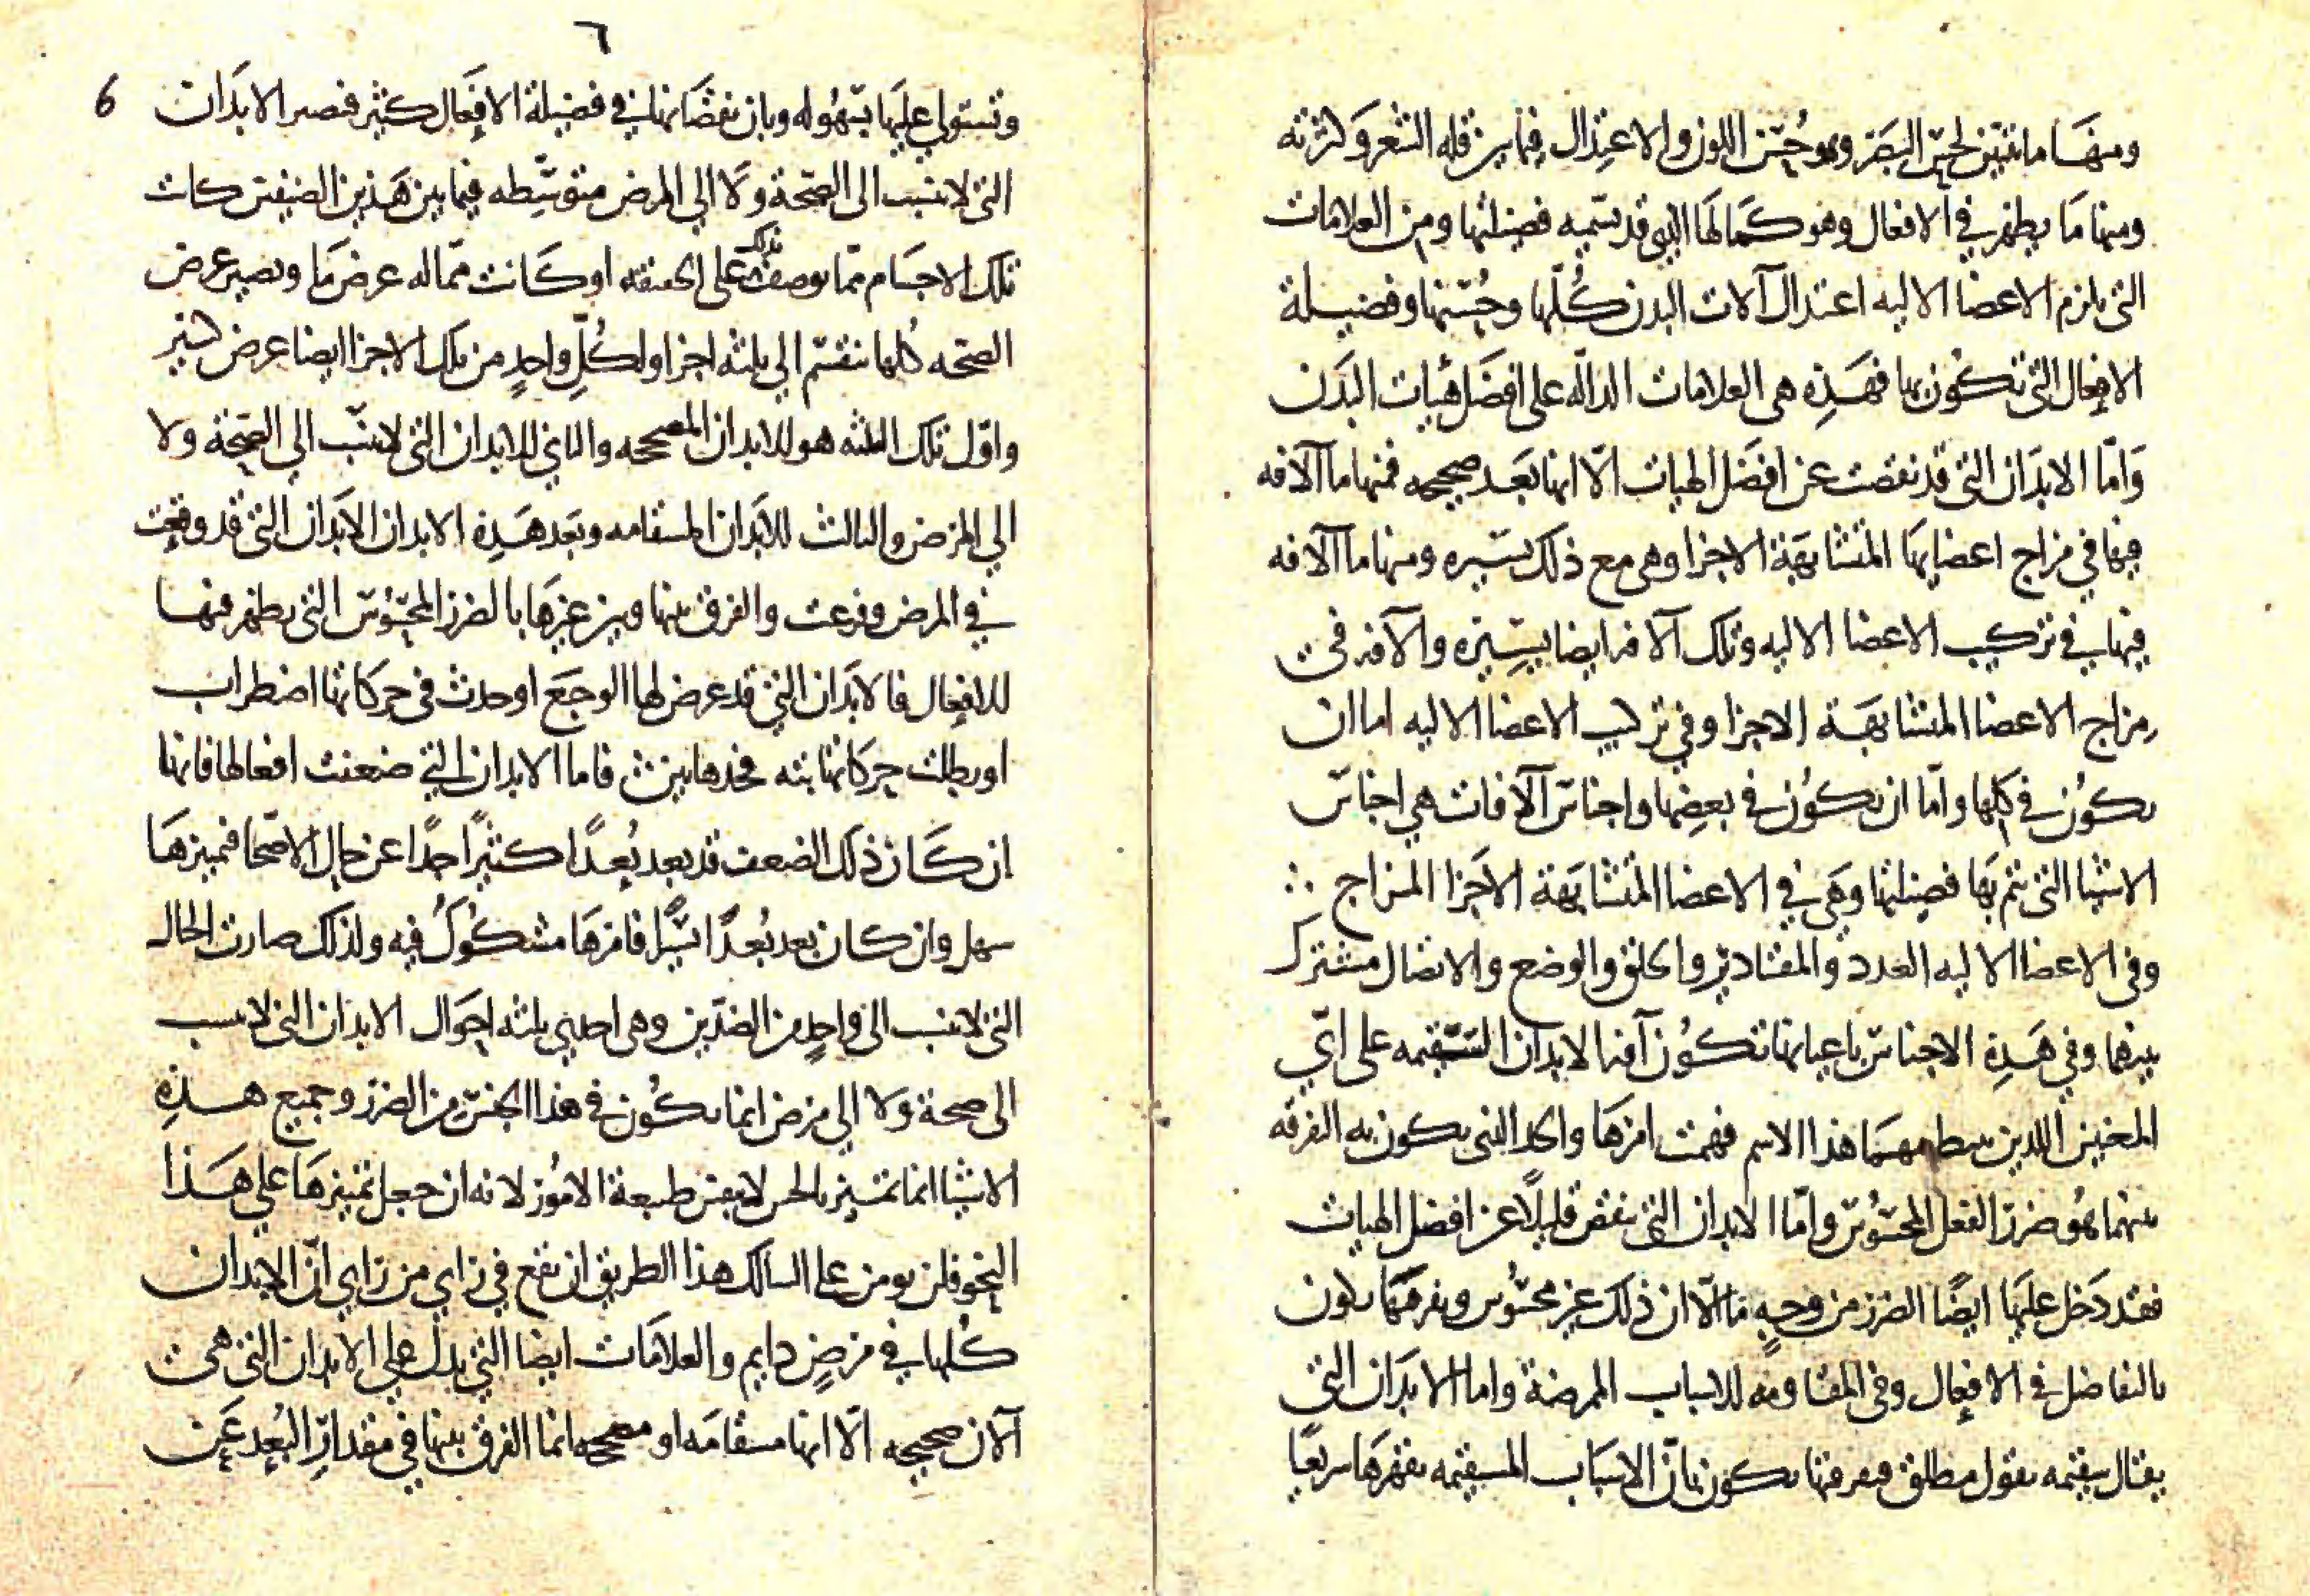 ومنها ما تتبين لحس البصر وهو حسن اللون والاعتدال فيما بين قله الشعر وكثرته
ومنها ما يظهر في الافعال وهو كمالها الذي قد نسميه فضيلتها ومن العلامات
التي يلزم الاعضا الاليه اعتدال آلات البدن كلها وحسنها وفضيلة
الافعال التي تكون بها فهذه هي العلامات الداله على افضل هيات البدن
وامّا الابدان التي قد نقصت عن افضل الهيات الّا انها بعد صحيحه فمنها ما الآفه
فيها في مزاج اعضايها المتشابهة الاجزا وهي مع ذلك يسيره ومنها ما الآفه
فيها في تركيب الاعضا الاليه وتلك الآفه ايضا يسيره والآفه في
مزاج الاعضا المتشابهة الاجزا وفي تركيب الاعضا الاليه اما ان
تكون في كلها وامّا ان تكون في بعضها واجناس الآفات هي اجناس
الاشيا التي تتم بها فضيلتها وهي في الاعضا المتشابهة الاجزا المزاج ∴
وفي الاعضا الاليه العدد والمقادير والخلق والوضع والاتصال مشترك
بينهما وفي هذه الاجناس باعيانها تكون آفه الابدان السقيمه على ايّ
المعنيين اللذين هذا الاسم فهمت امرها والحد الذي يكون به التفرقه
بينهما هو ضرر الفعل المحسوس وامّا الابدان التي نقص قليلًا عن افضل الهيات
فقد دخل عليها ايضًا الضرر من وجهٍ ما الّا ان ذلك غير محسوس ويفرقهما يكون
بالتفاضل في الافعال وفي المقاومه للاسباب الممرضة واما الابدان التي
يقال سقيمه بقول مطلق فمعرفتها تكون بانّ الاسباب المسقيمه تقهرها سريعًا
٦
6
وتستولي عليها بسهوله وبان نقصانها في فضيلة الافعال كثير فصير الابدان
التي لا تنسب الى الصحة ولا الي المرض متوسّطه فيما بين هذين الصنفين كانت
تلك الاجسام ممّا توصف بذلك على الحقيقه او كانت ممّا له عرض ما ويصير عرض
الصحه كلها ينقسم الي ثلثه اجزا ولكلّ واحدٍ من تلك الاجزا ايضا عرض كثير
واوّل تلك الثلثه هو للابدان المصححه والثاني للابدان التي لا تنسب الي الصحة ولا
الي المرض والثالث للابدان المسقامه وبعد هذه الابدان الابدان التي قد وقعت
في المرض وفرعت والفرق بينها وبين غيرها بالضرر المحسوس التي يظهر فيها
للافعال فالابدان التي قد عرض لها الوجع او حدث في حركاتها اضطراب
او بطلت حركاتها بته فحدها بين فاما الابدان التي ضعفت افعالها فانها
ان كان ذلك الضعف قد بعد بُعدًا كثيرًا جدًا عن حال الاصحّا فتميزها
سهل وان كان بعد بُعدًا يسيرًا فامرها مشكوك فيه ولذلك صارت الحال
التي لا تنسب الى واحدٍ من الضدّين وهي احدي ثلثه احوال الابدان التي لا تنسب
الى صحة ولا الي مرض انما تكون في هذا الجنس من الضرر وجميع هذه
الاشيا انما تتميز بالحس لا بنفس طبيعة الامور لانه ان جعل تميزها على هذا
النحو فلن يومن على السالك هذا الطريق ان يقع في راي من راي انّ الابدان
كلها في مرضٍ دايم والعلامات ايضا التي يدل علي الابدان التي هي
الآن صحيحه الّا انها مسقامه او مصححه انما الفرق بينها في مقدار البُعد عن